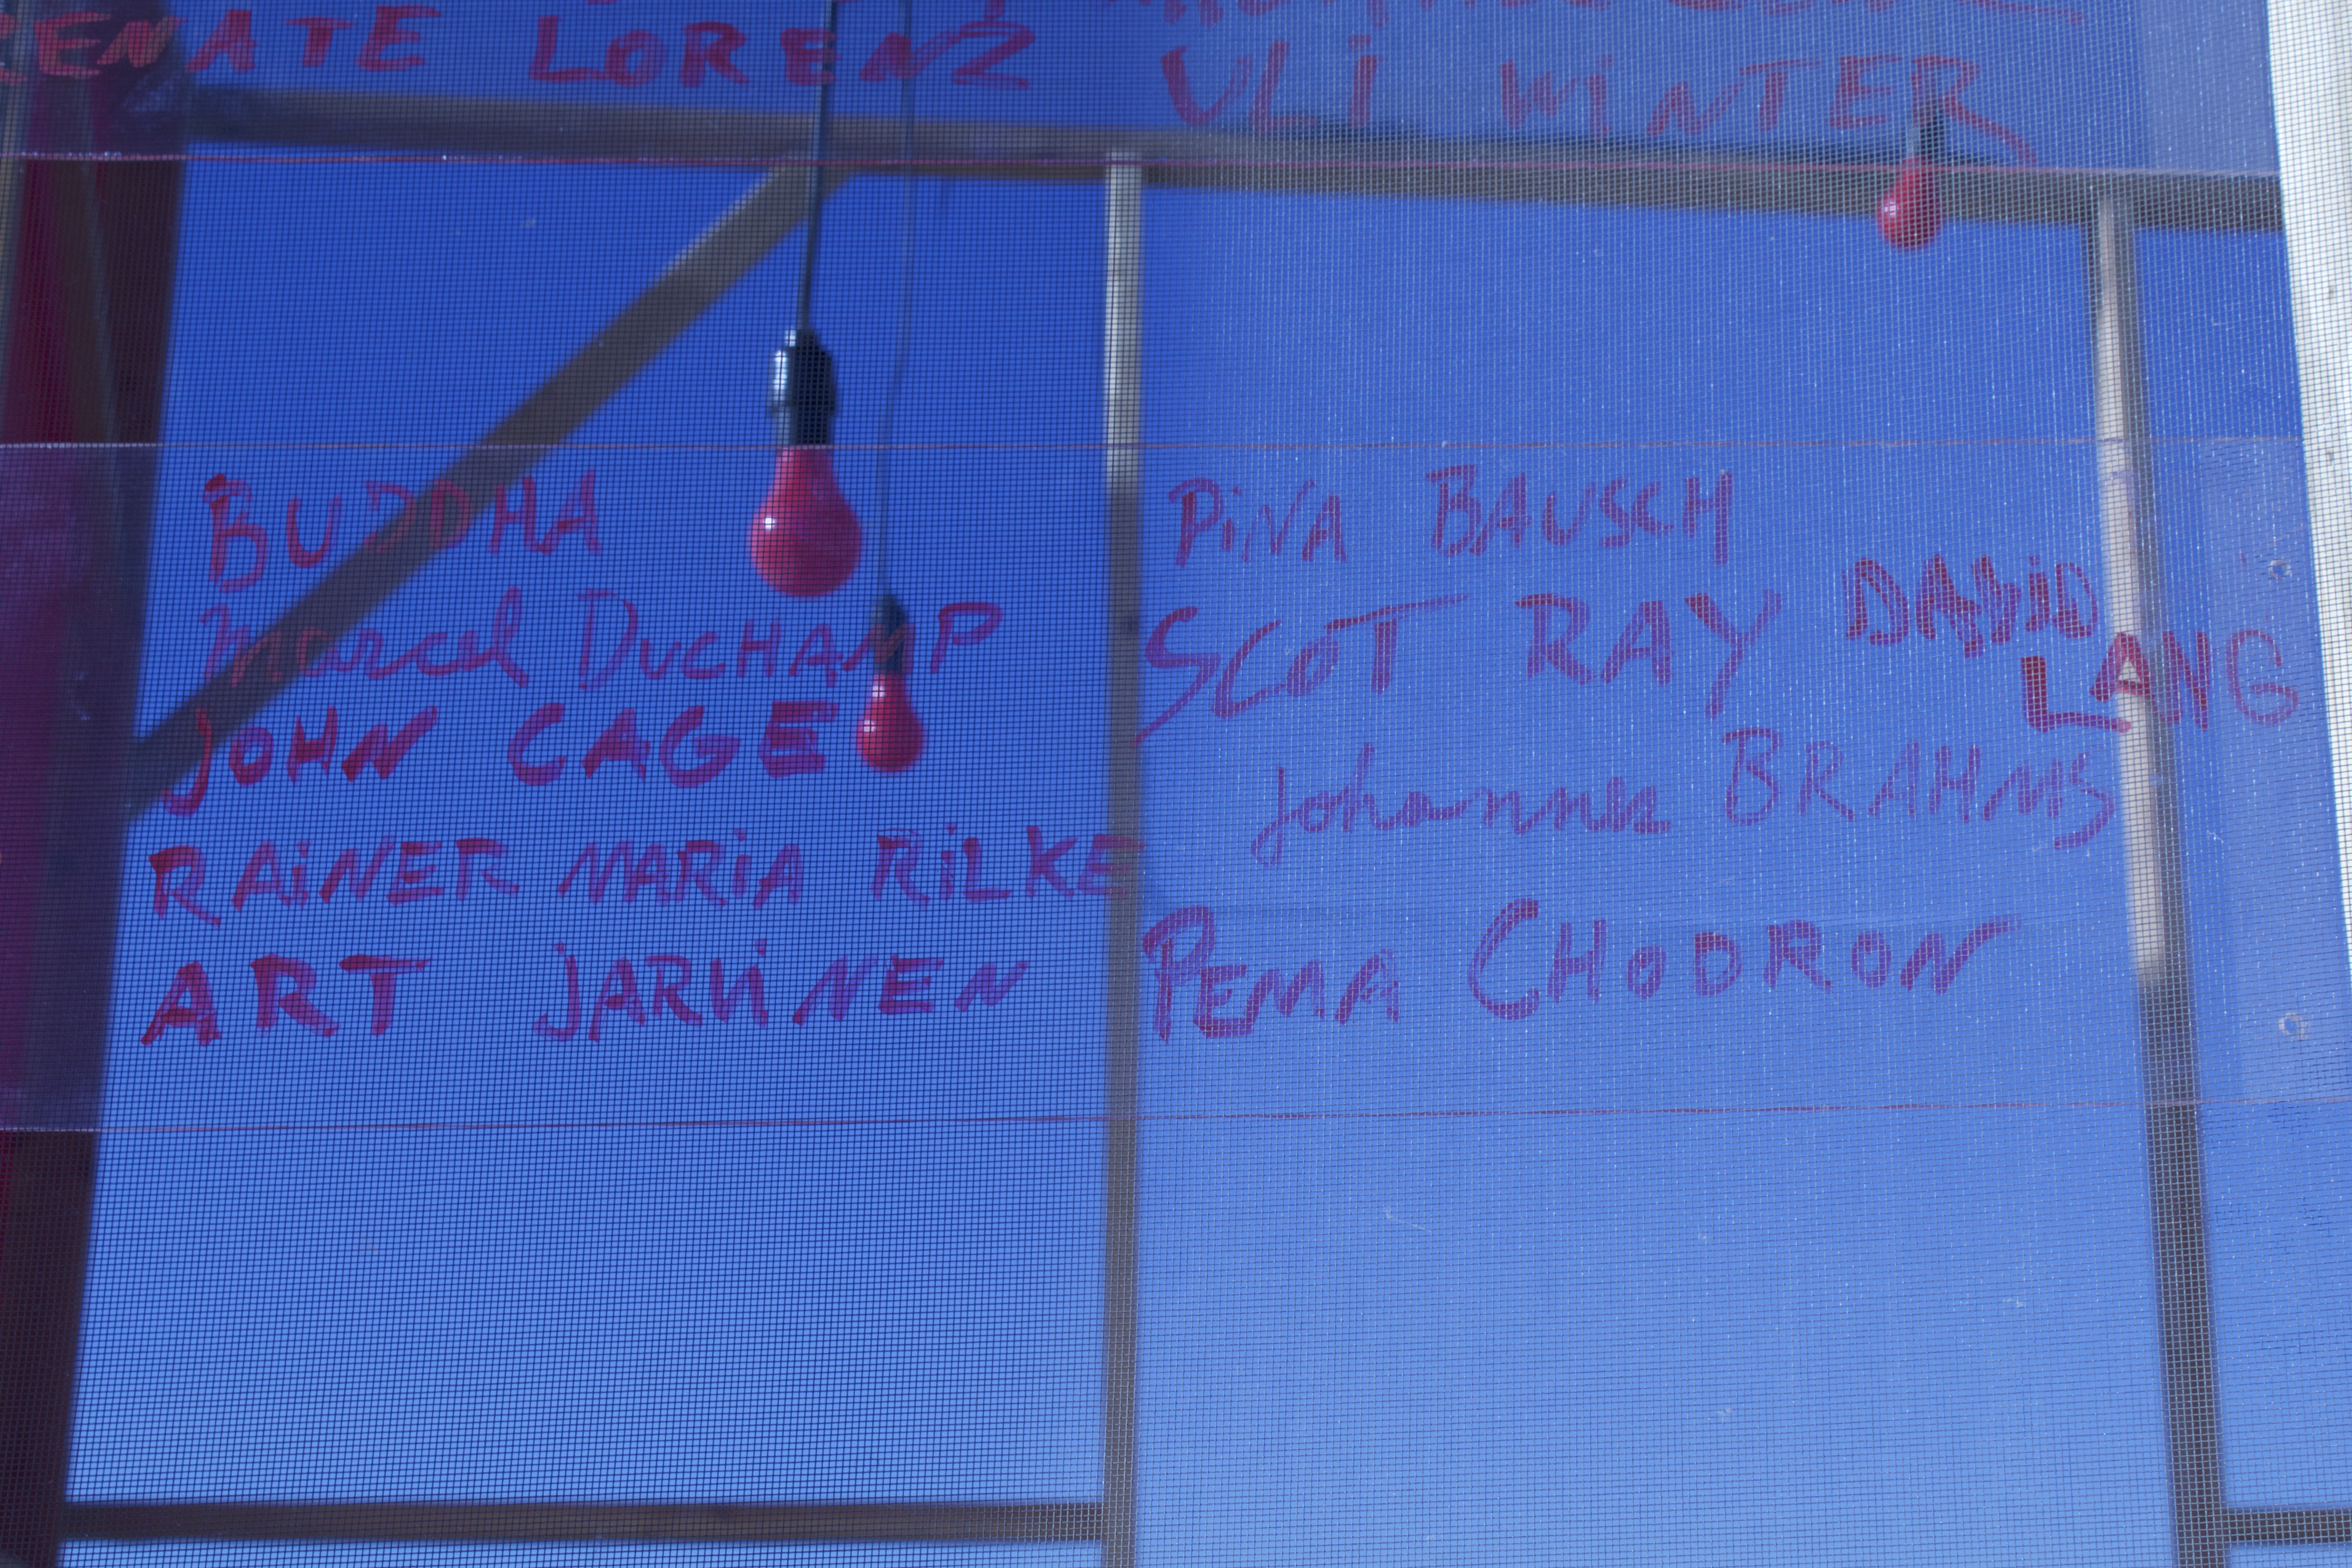 RENATE LORENZ
ULI WINTER
BUDDHA
Marcel DUCHAMP
JOHN CAGE
RAiNER MARiA RiLKE
ART JARViNEN
PiNA BAUSCH
SCOT RAY
DAViD
LANG
Johannes BRAHMS
PEMA CHODRON